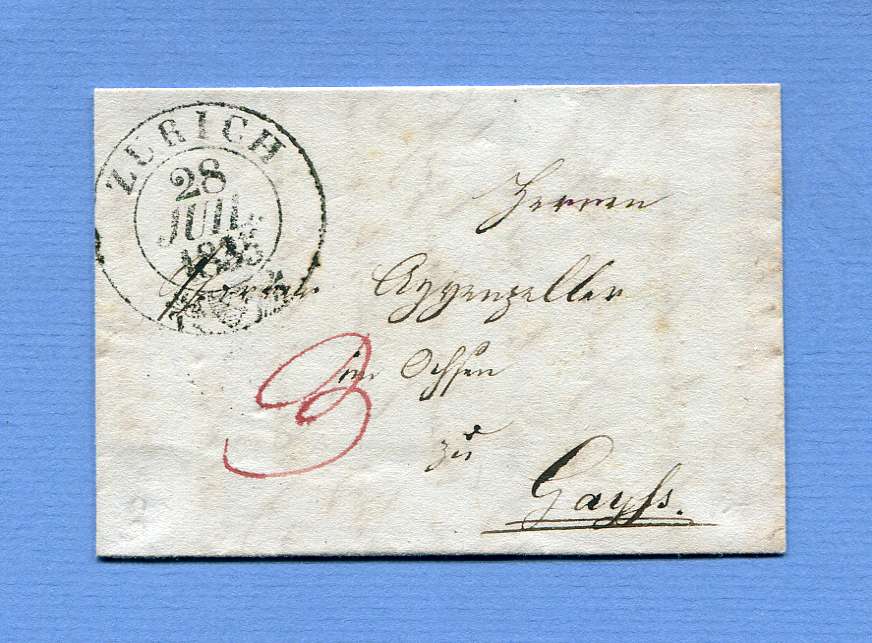 ZURICH
28
JUIL.
Herren
Appenzeller
im Ochsen
zu
Gayß.
3